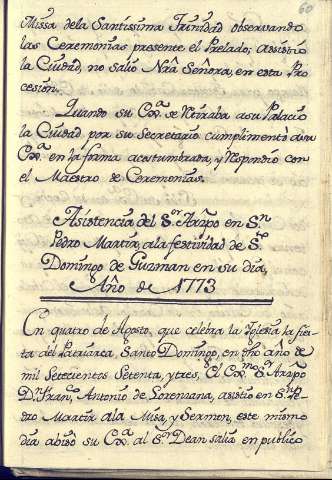 60
Missa de la Santissima Trinidad observando
las Ceremonias presente el Prelado; assistió
la Ciudad, no salió Nrâ Señora, en esta Pro
cesion.
Quando su Exa. se retiraba a su Palacio
la Ciudad por su Secretario cumplimentò a su
Exa. en la forma acostumbrada, y respondio con
el Maestro de Ceremonias.
Asistencia del Sor. Arzpo en Sn.
Pedro Martir, a la festividad de Sto.
Domingo de Guzman en su dia,
Año de 1773
En quatro de Agosto, que celebra la Iglesia la fies
ta del Patriarca, Santo Domingo, en dho año de
mil Setecientos Setenta, y tres, el Exmo. Sr. Arzpo
Dn. Fran.co Antonio de Lorenzana, asistio en Sn. Pe-
dro Martir a la Misa, y Sermon, este mismo
dia abisò su Exa. al Sr. Dean salia en publico